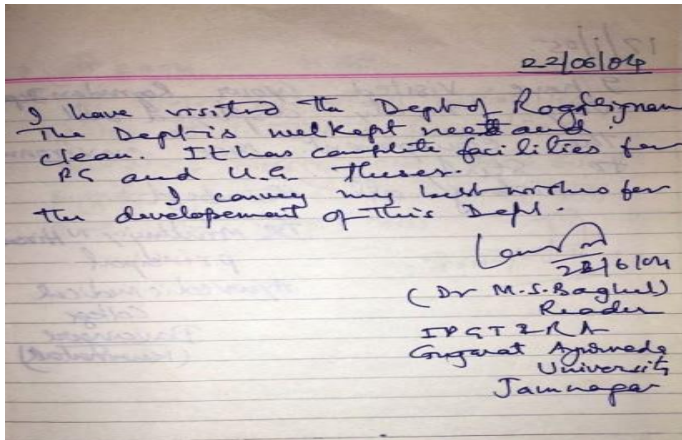 22/06/04
I have visited the Dept of Rog Vignan
The Dept is well kept neat and
clean. It has complete facilities for
PG and U.G. Theses.
I convey my best wishes for
the developement of this Dept.
22/6/04
(Dr M.S. Baghel)
Reader
IPGT & RA
Gujarat Ayurveda
University
Jamnagar